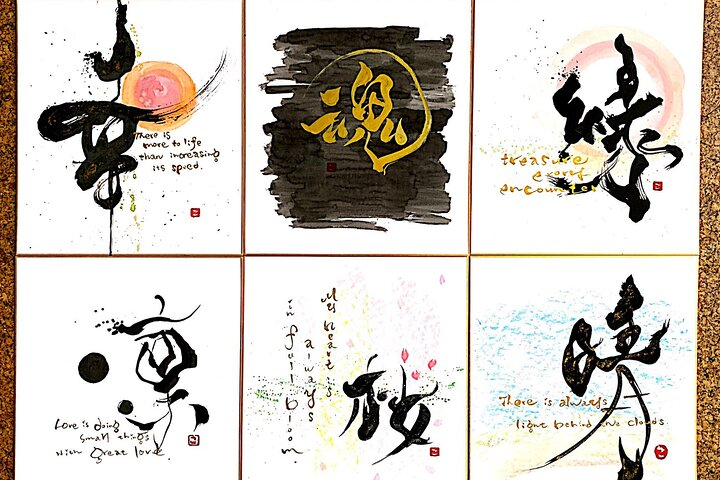 幸
There is
more to life
than increasing
its speed.
魂
縁
treasure
every
encounter
凛
Love is doing
small things
with great love.
My heart is
always
in full bloom.
桜
晴
There is always
light behind the clouds.